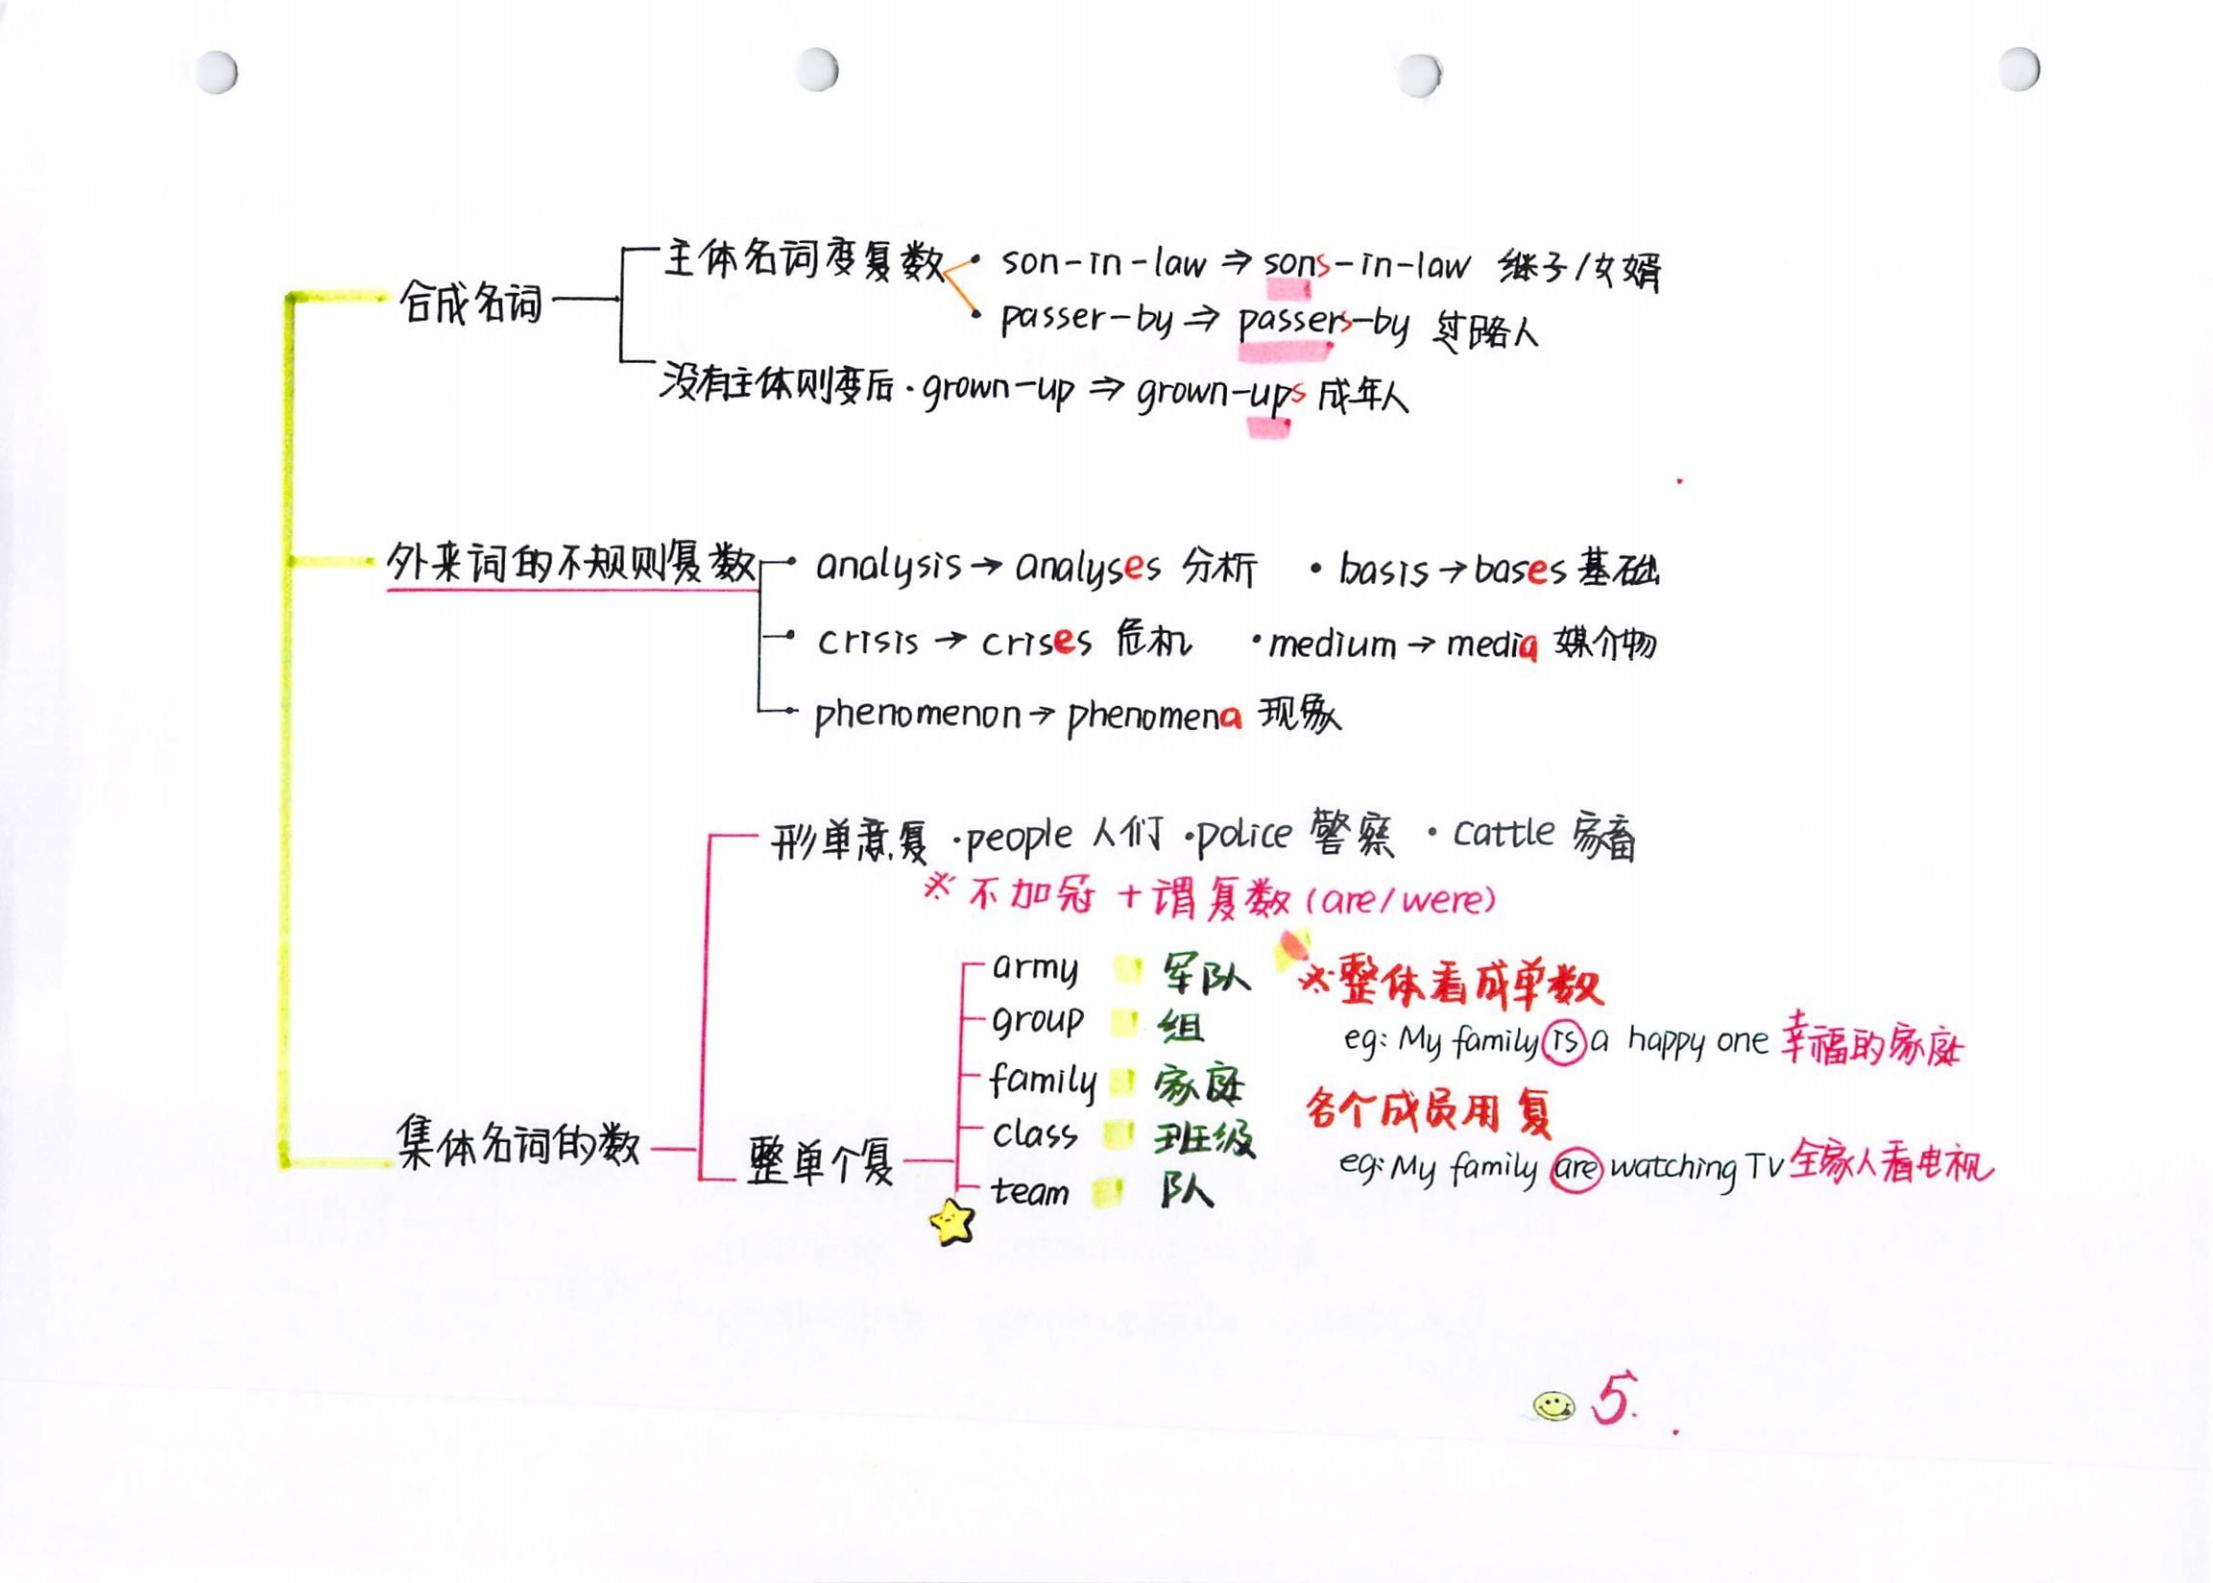 主体名词变复数 • son-in-law ⇒ sons-in-law 继子/女婿
合成名词
• passer-by ⇒ passers-by 过路人
没有主体则变后 · grown-up ⇒ grown-ups 成年人
外来词的不规则复数 • analysis → analyses 分析 • basis → bases 基础
• crisis → crises 危机 • medium → media 媒介物
• phenomenon → phenomena 现象
形单意复 ·people 人们 ·police 警察 · cattle 家畜
※ 不加冠 + 谓复数 (are/were)
army 军队 ※整体看成单数
group 组 eg: My family is a happy one 幸福的家庭
family 家庭
各个成员用复
集体名词的数 整单个复 class 班级
eg: My family are watching TV 全家人看电视
team 队
5.